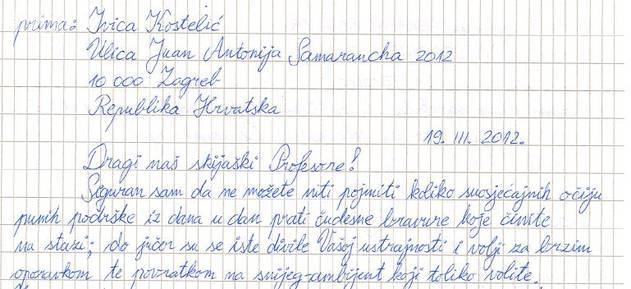 prima: Ivica Kostelić
Ulica Juan Antonija Samarancha 2012
10 000 Zagreb
Republika Hrvatska
19. III. 2012.
Dragi naš skijaški Profesore!
Siguran sam da ne možete niti pojmiti koliko suosjećajnih očiju
punih podrške iz dana u dan prati čudesne bravure koje činite
na stazi; do jučer su se iste divile Vašoj ustrajnosti i volji za brzim
oporavkom te povratkom na snijeg-ambijent koji toliko volite.